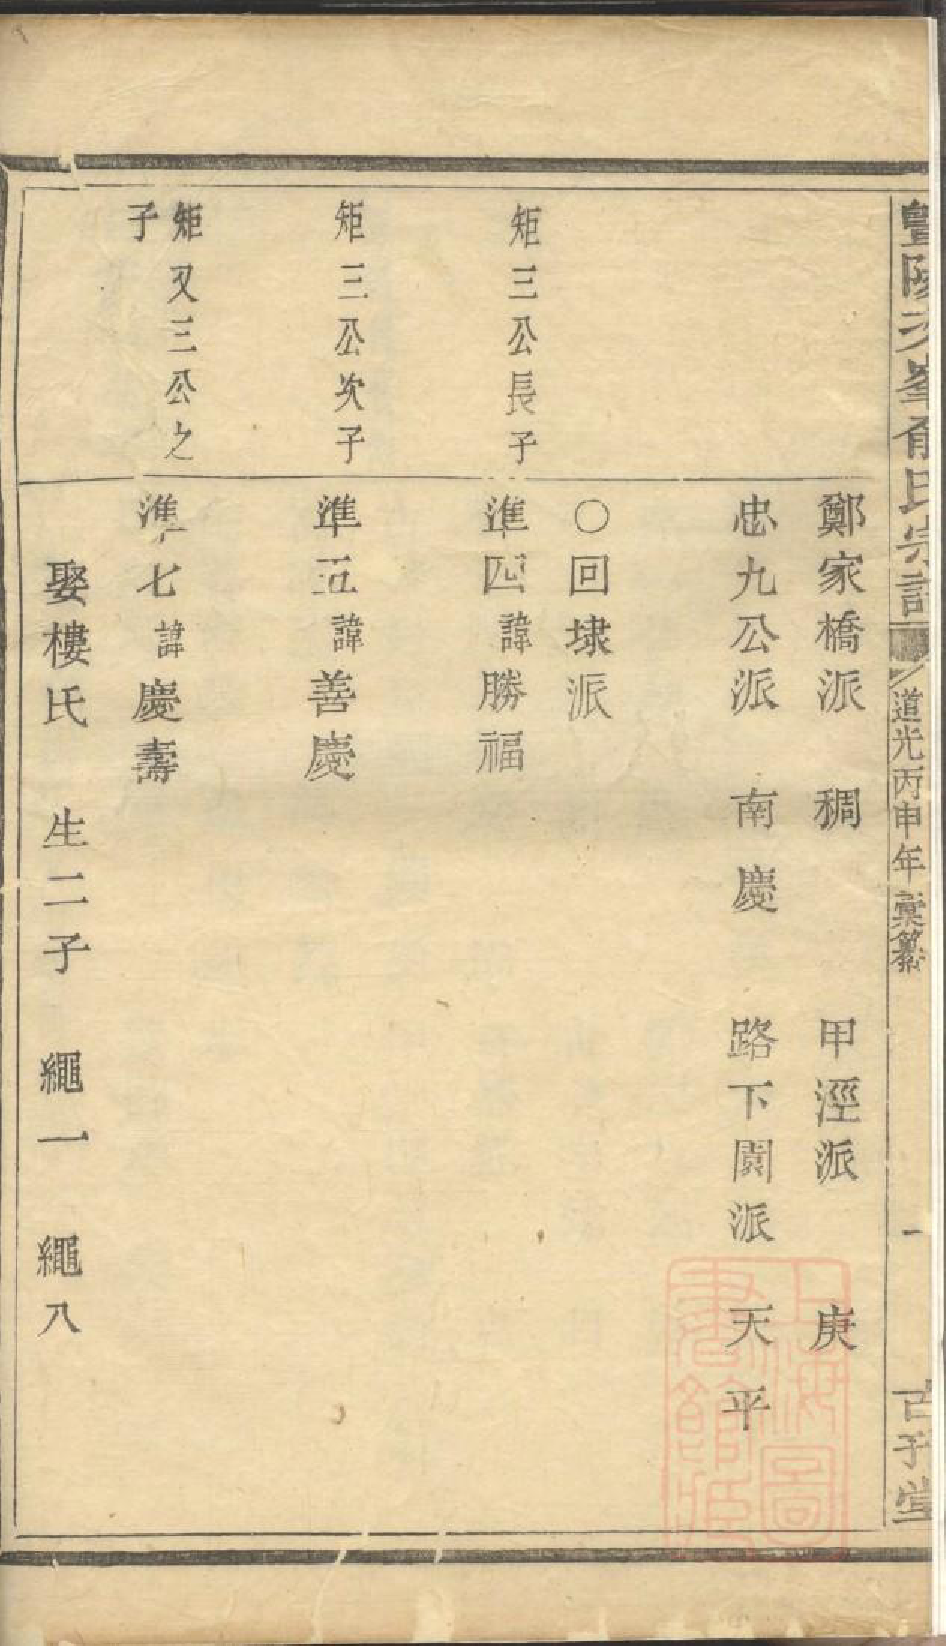 豐陵天峯俞氏宗譜
道光丙申年彙纂
一
鄭家橋派 稠 甲溼派 庚
忠九公派 南慶 路下園派 天平
○回埭派
矩三公長子
準四諱勝福
矩三公次子
準五諱善慶
矩又三公之
子
準七諱慶壽
娶樓氏 生二子 繩一 繩八
上海圖
書館